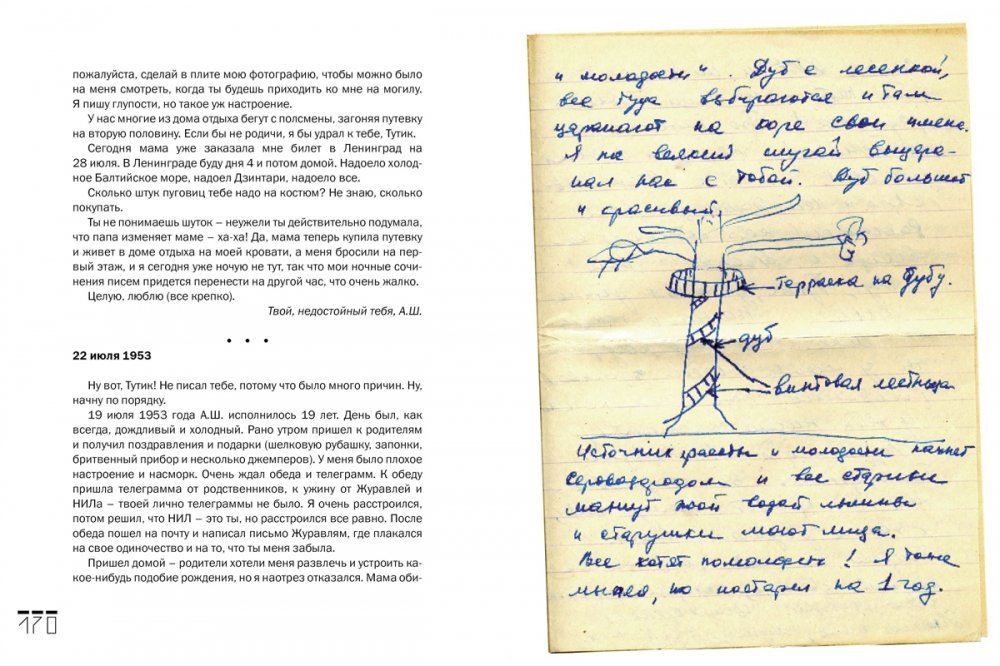 пожалуйста, сделай в плите мою фотографию, чтобы можно было
на меня смотреть, когда ты будешь приходить ко мне на могилу.
Я пишу глупости, но такое уж настроение.
У нас многие из дома отдыха бегут с полсмены, загоняя путевку
на вторую половину. Если бы не родичи, я бы удрал к тебе, Тутик.
Сегодня мама уже заказала мне билет в Ленинград на
28 июля. В Ленинграде буду дня 4 и потом домой. Надоело холод-
ное Балтийское море, надоел Дзинтари, надоело все.
Сколько штук пуговиц тебе надо на костюм? Не знаю, сколько
покупать.
Ты не понимаешь шуток – неужели ты действительно подумала,
что папа изменяет маме – ха-ха! Да, мама теперь купила путевку
и живет в доме отдыха на моей кровати, а меня бросили на пер-
вый этаж, и я сегодня уже ночую не тут, так что мои ночные сочи-
нения писем придется перенести на другой час, что очень жалко.
Целую, люблю (все крепко).
Твой, недостойный тебя, А.Ш.
• • •
22 июля 1953
Ну вот, Тутик! Не писал тебе, потому что было много причин. Ну,
начну по порядку.
19 июля 1953 года А.Ш. исполнилось 19 лет. День был, как
всегда, дождливый и холодный. Рано утром пришел к родителям
и получил поздравления и подарки (шелковую рубашку, запонки,
бритвенный прибор и несколько джемперов). У меня было плохое
настроение и насморк. Очень ждал обеда и телеграмм. К обеду
пришла телеграмма от родственников, к ужину от Журавлей и
НИЛа – твоей лично телеграммы не было. Я очень расстроился,
потом решил, что НИЛ – это ты, но расстроился все равно. После
обеда пошел на почту и написал письмо Журавлям, где плакался
на свое одиночество и на то, что ты меня забыла.
Пришел домой – родители хотели меня развлечь и устроить ка-
кое-нибудь подобие рождения, но я наотрез отказался. Мама оби-
170
и молодости". Дуб с лесенкой,
все туда взбираются и там
царапают на коре свои имена.
Я на всякий случай выцара-
пал нас с тобой. Дуб большой
и красивый.
терраска на дубу.
дуб
винтовая лестница
Источник красоты и молодости пахнет
сероводородом и все старики
мажут этой водой лысины
и старушки моют лица.
Все хотят помолодеть! Я тоже
мылся, но постарел на 1 год.